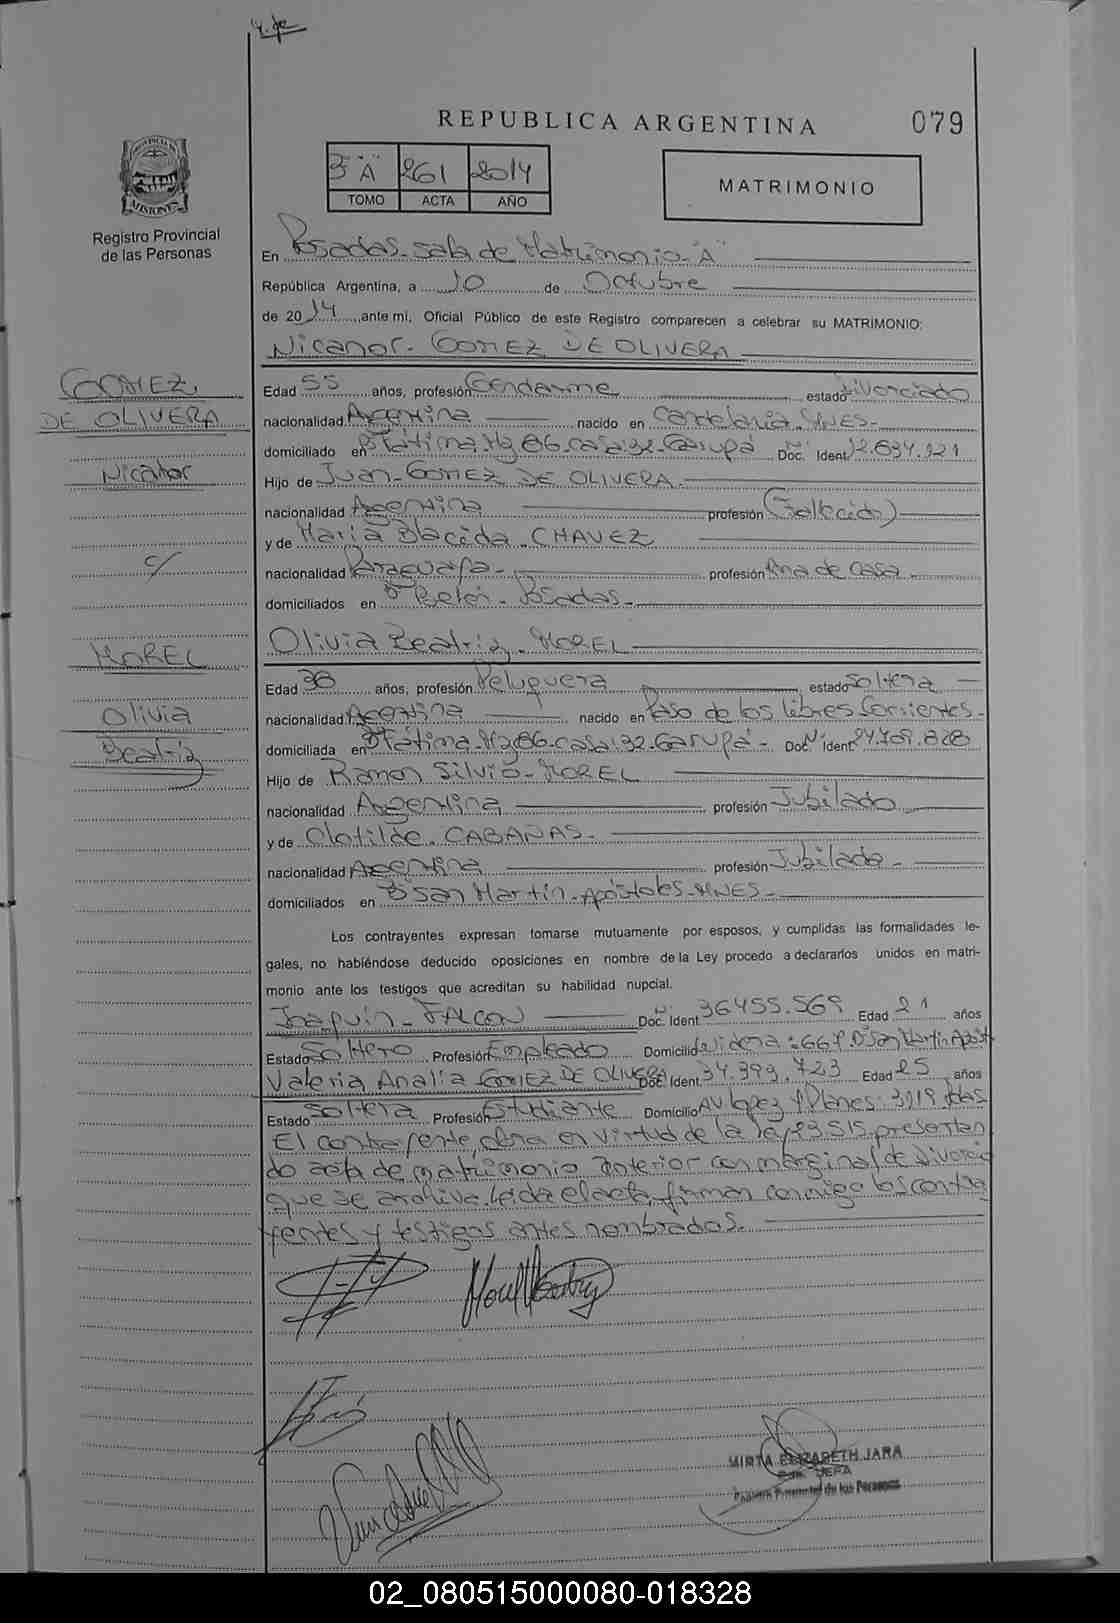 REPUBLICA ARGENTINA
079
3º "A" 261 2014
TOMO ACTA AÑO
MATRIMONIO
PROVINCIA DE
MISIONES
Registro Provincial
de las Personas
En Posadas. sala de Matrimonio "A"
República Argentina, a 10 de Octubre
de 2014, ante mi, Oficial Público de este Registro comparecen a celebrar su MATRIMONIO:
Nicanor. GOMEZ DE OLIVERA
GOMEZ
DE OLIVERA
Nicanor
c/
MOREL
Olivia
Beatriz
Edad 55 años, profesión Gendarme estado divorciado
nacionalidad Argentina nacido en Candelaria. MNES.
domiciliado en Bº Fátima. Mz 86. casa: 32. Garupá. Doc. Ident. 12.634.121
Hijo de Juan. GOMEZ DE OLIVERA.
nacionalidad Argentina profesión (Fallecido)
y de María Placida. CHAVEZ
nacionalidad Paraguaya. profesión Ama de Casa.
domiciliados en Bº Belén. Posadas.
Olivia Beatriz. MOREL
Edad 38 años, profesión Peluquera estado soltera
nacionalidad Argentina nacido en Paso de los Libres. Corrientes.
domiciliada en Bº Fátima. Mz 86. casa: 32. Garupá. Doc. Ident. 24.709.828
Hijo de Ramon Silvio. MOREL
nacionalidad Argentina profesión Jubilado
y de Clotilde. CABAÑAS.
nacionalidad Argentina profesión Jubilado.
domiciliados en Bº San Martin. Apóstoles. MNES.
Los contrayentes expresan tomarse mutuamente por esposos, y cumplidas las formalidades le-
gales, no habiéndose deducido oposiciones en nombre de la Ley procedo a declararlos unidos en matri-
monio ante los testigos que acreditan su habilidad nupcial.
Joaquín. FALCON Doc. Ident. 36455.569 Edad 21 años
Estado Soltero Profesión Empleado Domicilio 667. Bº San Martin Apost
Valeria Analía GOMEZ DE OLIVERA Doc. Ident. 34.393.723 Edad 25 años
Estado Soltera Profesión Estudiante Domicilio AV Lopez Y Planes: 3219 Pdas
El contrayente, obra en virtud de la ley 23515. presentan
do acta de matrimonio anterior con marginal de Divorcio
que se archiva. Leida el acta, firman conmigo los contra
yentes y testigos antes nombrados.
MIRTA ELIZABETH JARA
JEFA
Registro Provincial de las Personas
02_080515000080-018328